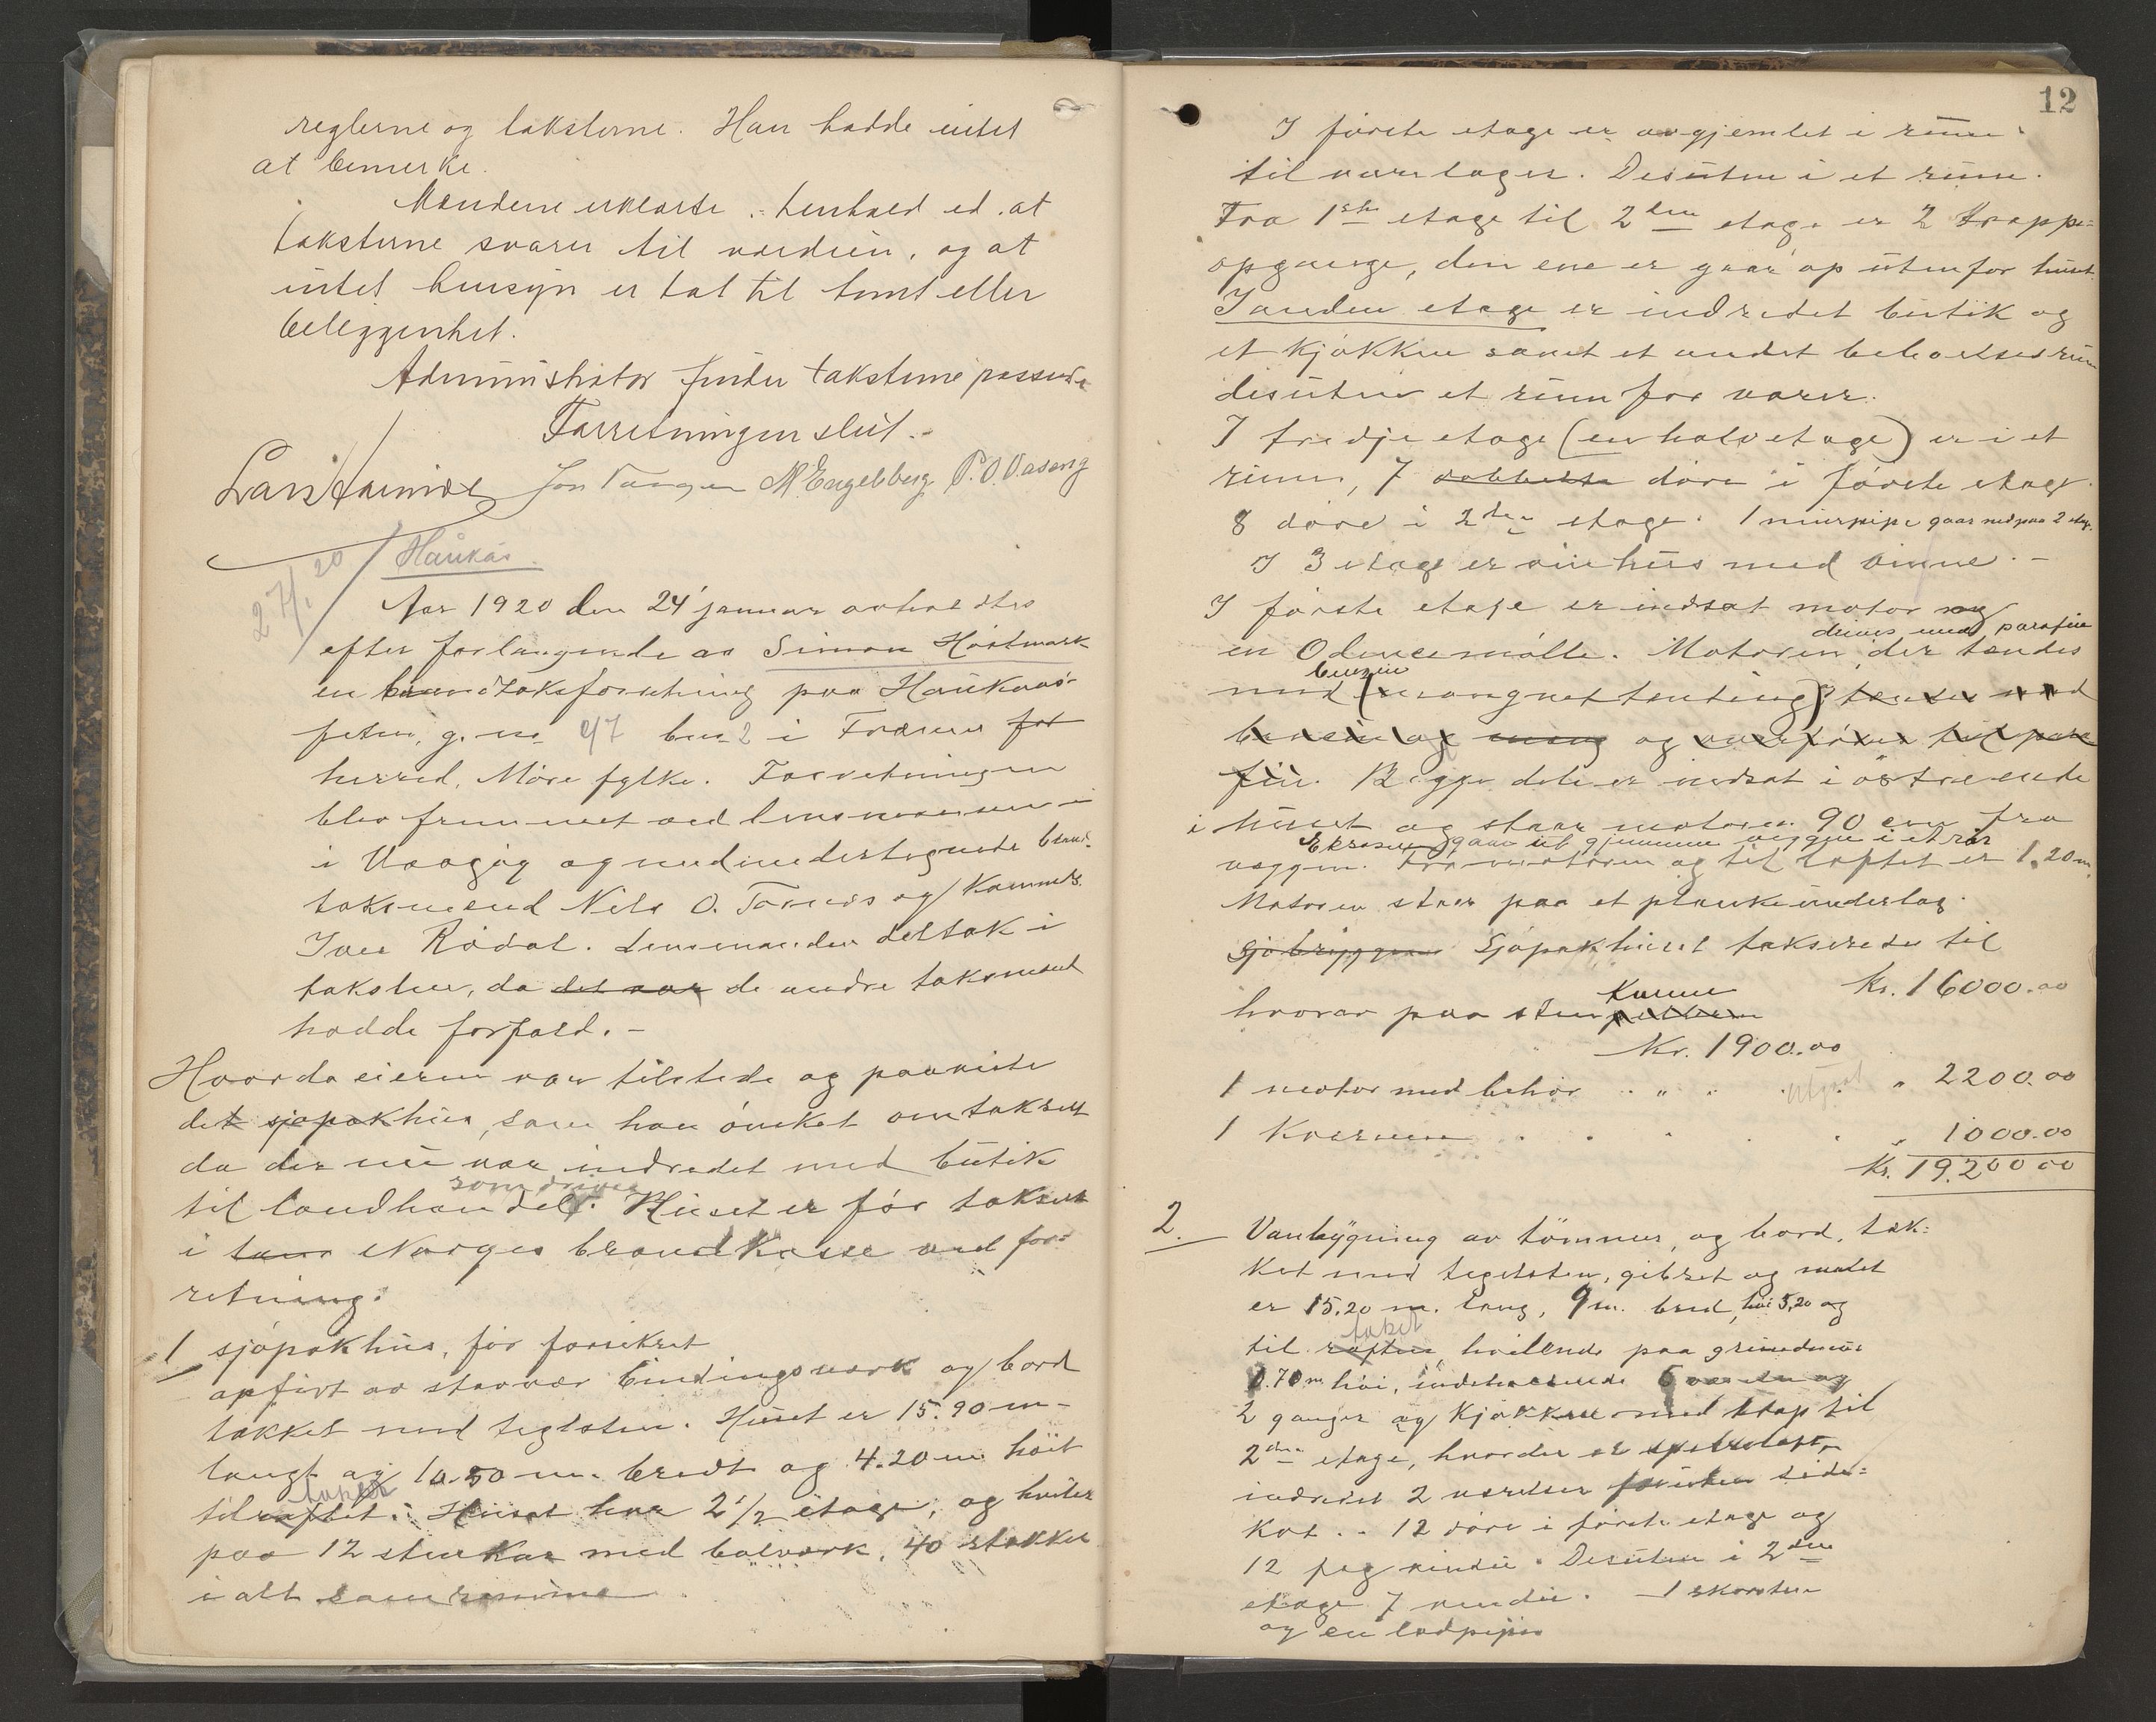 reglerne og taksterne. Han hadde intet
at bemerke.
Mændene erklærte i henhold ed. at
taksterne svarer til værdien, og at
intet hensyn er tat til tomt eller
beliggenhet.
Administrator finder taksterne passende
Forretningen slut.-
Lars Hammås Jon Tangen M. Engelberg P. O. Vaseng
27/1 20
Haukås.
Aar 1920 den 24 januar avholdtes
efter forlangende av Simon Hostmark
en brandtaksforretning paa Haukaas-
g. no 47 bno 2 i Fræna for
herred, Möre fylke. Forretningen
blev fremmet ved lensmannen
i Vaagöy og med undertegnede brand-
taksmænd Nils O. Tornes og
Iver Rödal. Lensmanden deltok i
taksten, da det var de andre taksmænd
hadde forfald.-
Hvorda eieren var tilstede og paaviste
det sjøpakhus, som han önsket omtaksert
da der nu var indredet med butik
som drives
til landhandel. Huset er för taksert
i Norges brandkasse ved for-
retning.
1 sjøpakhus, för forsikret
opført av stavvær bindingsverk og bord
tækket med teglsten. Huset er 15.90 m-
langt og 10.50 m. bredt og 4.20 m höit
taket
til raftet. Huset har 2 1/2 etage, og hviler
paa 12 stenkar med bolverk, 40 stokker
i alt
12
I förste etage er avgjemlet i rum
til varelager. Desuten i et rum.
Fra 1ste etage til 2den etage er 2 trappe-
opgange, den ene er gaar op utenfor huset.
I anden etage er indredet butik og
et kjøkken samt et andet beboelsesrum
desuten et rum for varer.
I tredje etage (en halv etage) er i et
rum, 7 dobbelte döre i förste etage.
8 döre i 2den etage. 1 murpipe gaar ned paa 2 etage.
I 3 etage er vinhus med vinne.-
I förste etage er indsat motor og
drives med parafin
en Odensemölle. Motoren, der tændes
benzin
med (mangnettenting)
og
fin. Begge dele er indsat i östre ende
i huset og staar motoren 90 cm fra
Eksosen gaar ut gjennem veggen i et rör
veggen. Fra motoren og til loftet er 1.20 m.
Motoren staar paa et plankeunderlag.
Sjöbryggen Sjöpakhuset takseredes til
Kr. 16000.00
Karene
hvorav paa sten
Kr. 1900.00
1 motor med behör " " " 2200.00
1 Kværnen " 1000.00
Kr. 19.200 00
2. Vanbygning av tömmer, og bord, tæk-
ket med tegelsten, gibset og malet
er 15.20 m. lang, 9 m. bred, höi 5,20 og
taket
til raften hvilende paa grundmur
0.70 m höi, indeholdende 6 værelser og
2 ganger og kjøkken med trap til
2den etage, hvorder er
indredet 2 værelser foruten side-
kot. . 12 döre i förste etage og
12 fag vindu. Desuten i 2den
etage 7 vindu. 1 skorsten
og en ladpipe